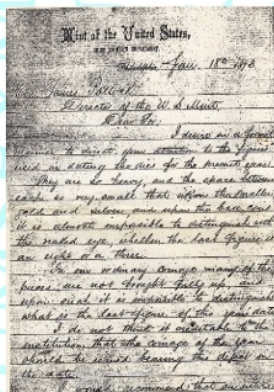 Mint of the United States,
Jan. 18th 1873
James Pollock
Director of the U S Mint.
Dear Sir.
I desire in a formal
manner to direct your attention to the figures
used in dating the dies for the present year.
They are so heavy, and the space between
each so very small that upon the smaller
gold and silver, and upon the base coins
it is almost impossible to distinguish with
the naked eye, whether the last figure is
an eight or a three.
In our ordinary coinage many of the
pieces are not brought fully up, and
upon such it is impossible to distinguish
what is the last figure of the year's date.
I do not think it creditable to the
institution that the coinage of the year
should be issued bearing this defect in
the date.
I would recommend that